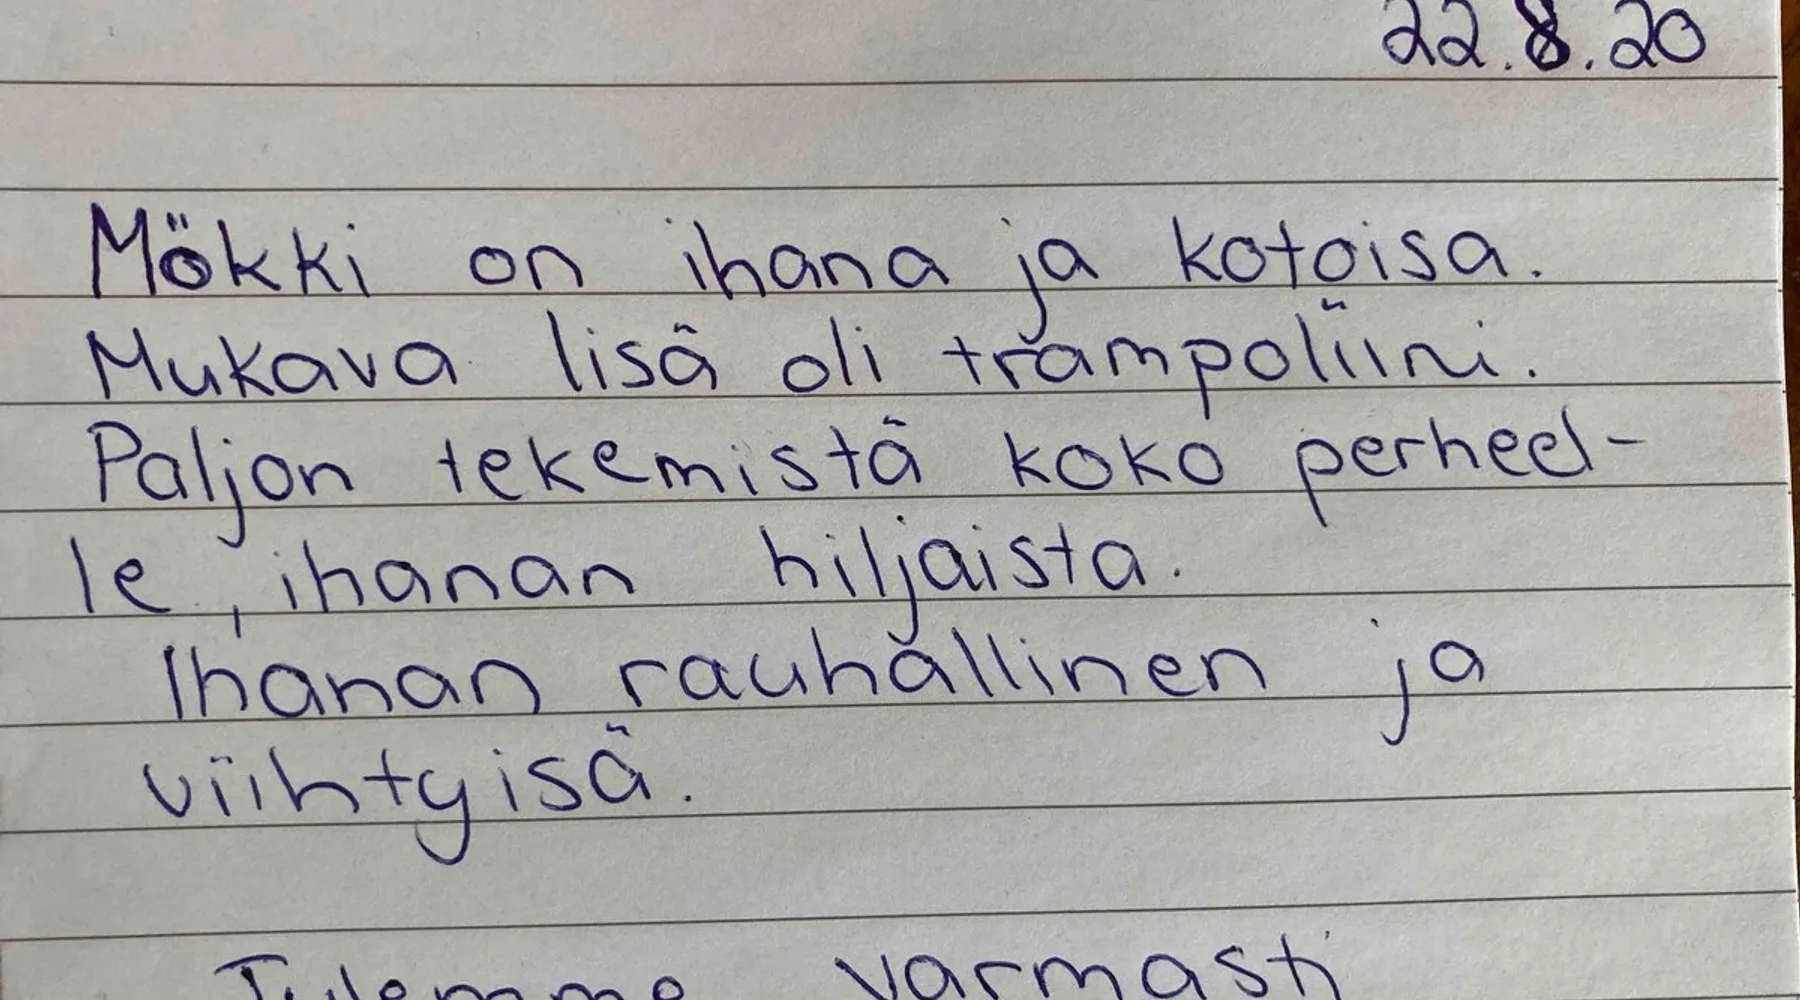 22.8.20
Mökki on ihana ja kotoisa.
Mukava lisä oli trampoliini.
Paljon tekemistä koko perheel-
le, ihanan hiljaista.
Ihanan rauhallinen ja
viihtyisä.
Tulemme varmasti